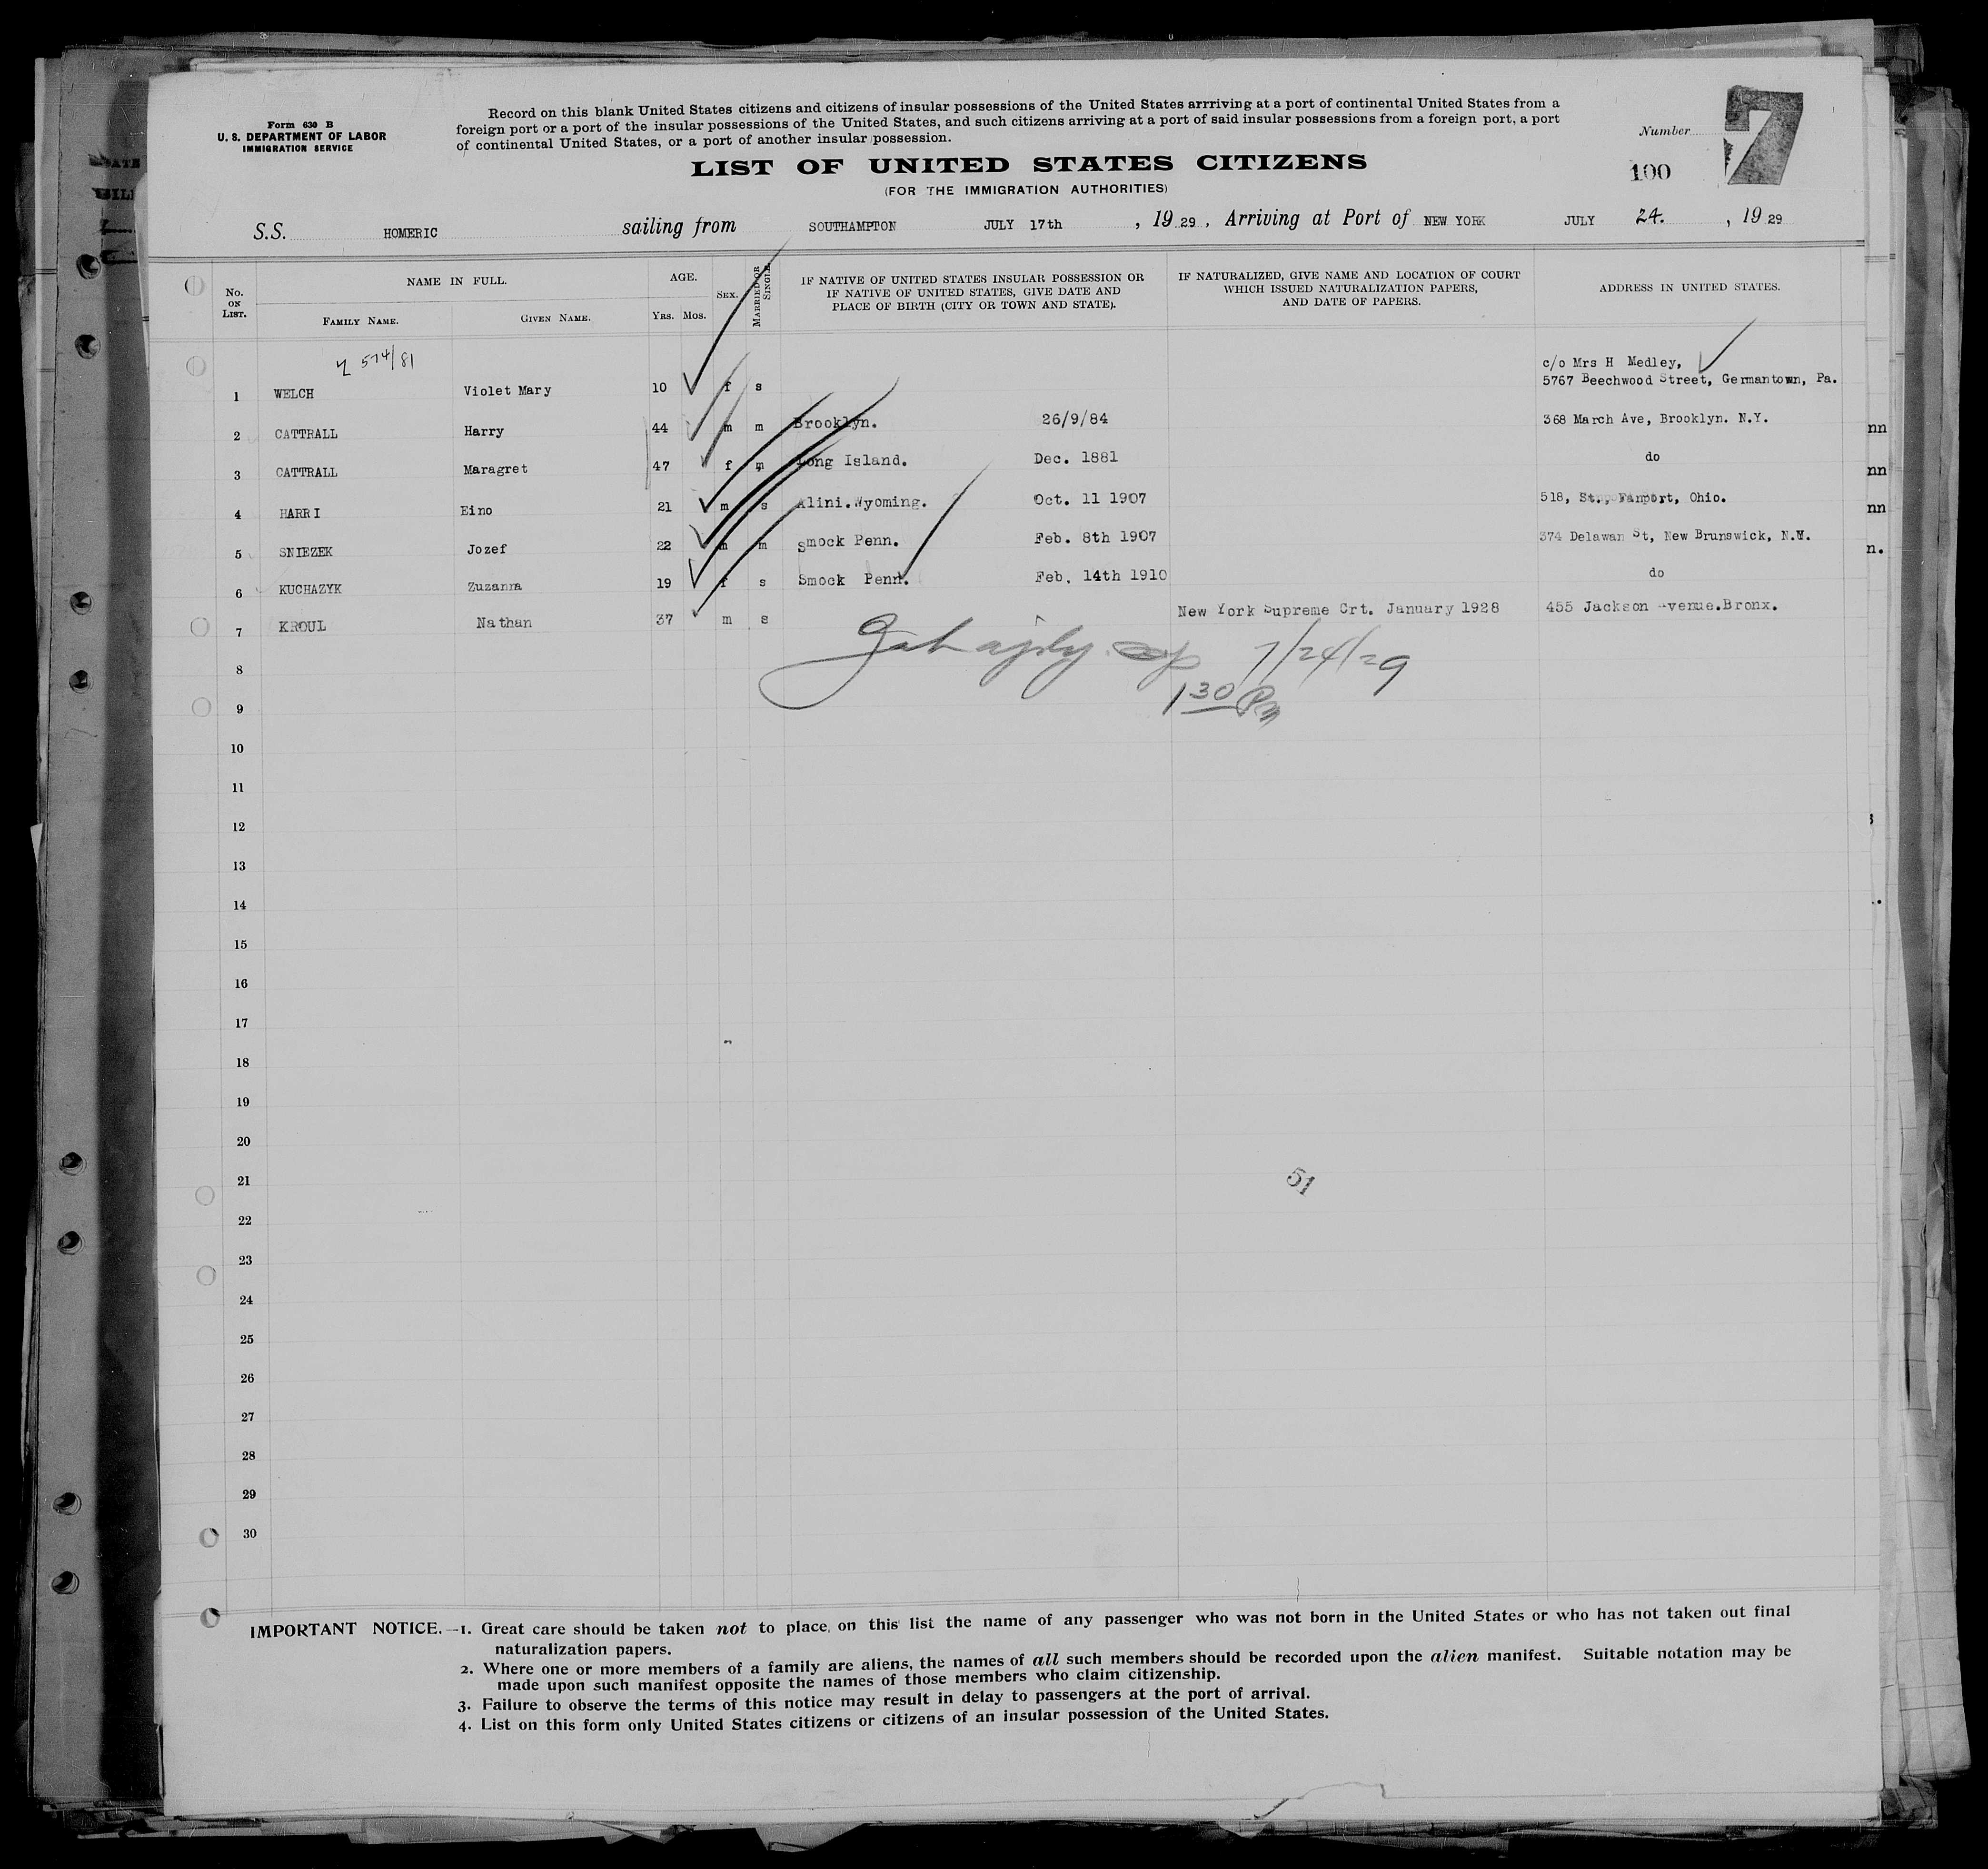 Form 630 B
U. S. DEPARTMENT OF LABOR
IMMIGRATION SERVICE
Record on this blank United States citizens and citizens of insular possessions of the United States arrriving at a port of continental United States from a
foreign port or a port of the insular possessions of the United States, and such citizens arriving at a port of said insular possessions from a foreign port, a port
of continental United States, or a port of another insular possession.
Number 7
100
LIST OF UNITED STATES CITIZENS
(FOR THE IMMIGRATION AUTHORITIES)
S.S. HOMERIC sailing from SOUTHAMPTON JULY 17th , 19 29 , Arriving at Port of NEW YORK JULY 24. , 19 29
No. ON LIST.
NAME IN FULL.
FAMILY NAME. GIVEN NAME.
AGE.
YRS. MOS.
SEX.
MARRIED OR SINGLE.
IF NATIVE OF UNITED STATES INSULAR POSSESSION OR
IF NATIVE OF UNITED STATES, GIVE DATE AND
PLACE OF BIRTH (CITY OR TOWN AND STATE).
IF NATURALIZED, GIVE NAME AND LOCATION OF COURT
WHICH ISSUED NATURALIZATION PAPERS,
AND DATE OF PAPERS.
ADDRESS IN UNITED STATES.
574/81
c/o Mrs H Medley,
1 WELCH Violet Mary 10 f s 5767 Beechwood Street, Germantown, Pa.
2 CATTRALL Harry 44 m m Brooklyn. 26/9/84 368 March Ave, Brooklyn. N.Y. nn
3 CATTRALL Maragret 47 f m Long Island. Dec. 1881 do nn
4 HARRI Eino 21 m s Alini.Wyoming. Oct. 11 1907 518, St., Fanport, Ohio. nn
5 SNIEZEK Jozef 22 m m Smock Penn. Feb. 8th 1907 374 Delawan St, New Brunswick, n.
6 KUCHAZYK Zuzanna 19 f s Smock Penn. Feb. 14th 1910 do
7 KROUL Nathan 37 m s New York Supreme Crt. January 1928 455 Jackson Avenue.Bronx.
7/24/29
1 30 Pm
8
9
10
11
12
13
14
15
16
17
18
19
20
21
51
22
23
24
25
26
27
28
29
30
IMPORTANT NOTICE.—1. Great care should be taken not to place on this list the name of any passenger who was not born in the United States or who has not taken out final
naturalization papers.
2. Where one or more members of a family are aliens, the names of all such members should be recorded upon the alien manifest. Suitable notation may be
made upon such manifest opposite the names of those members who claim citizenship.
3. Failure to observe the terms of this notice may result in delay to passengers at the port of arrival.
4. List on this form only United States citizens or citizens of an insular possession of the United States.